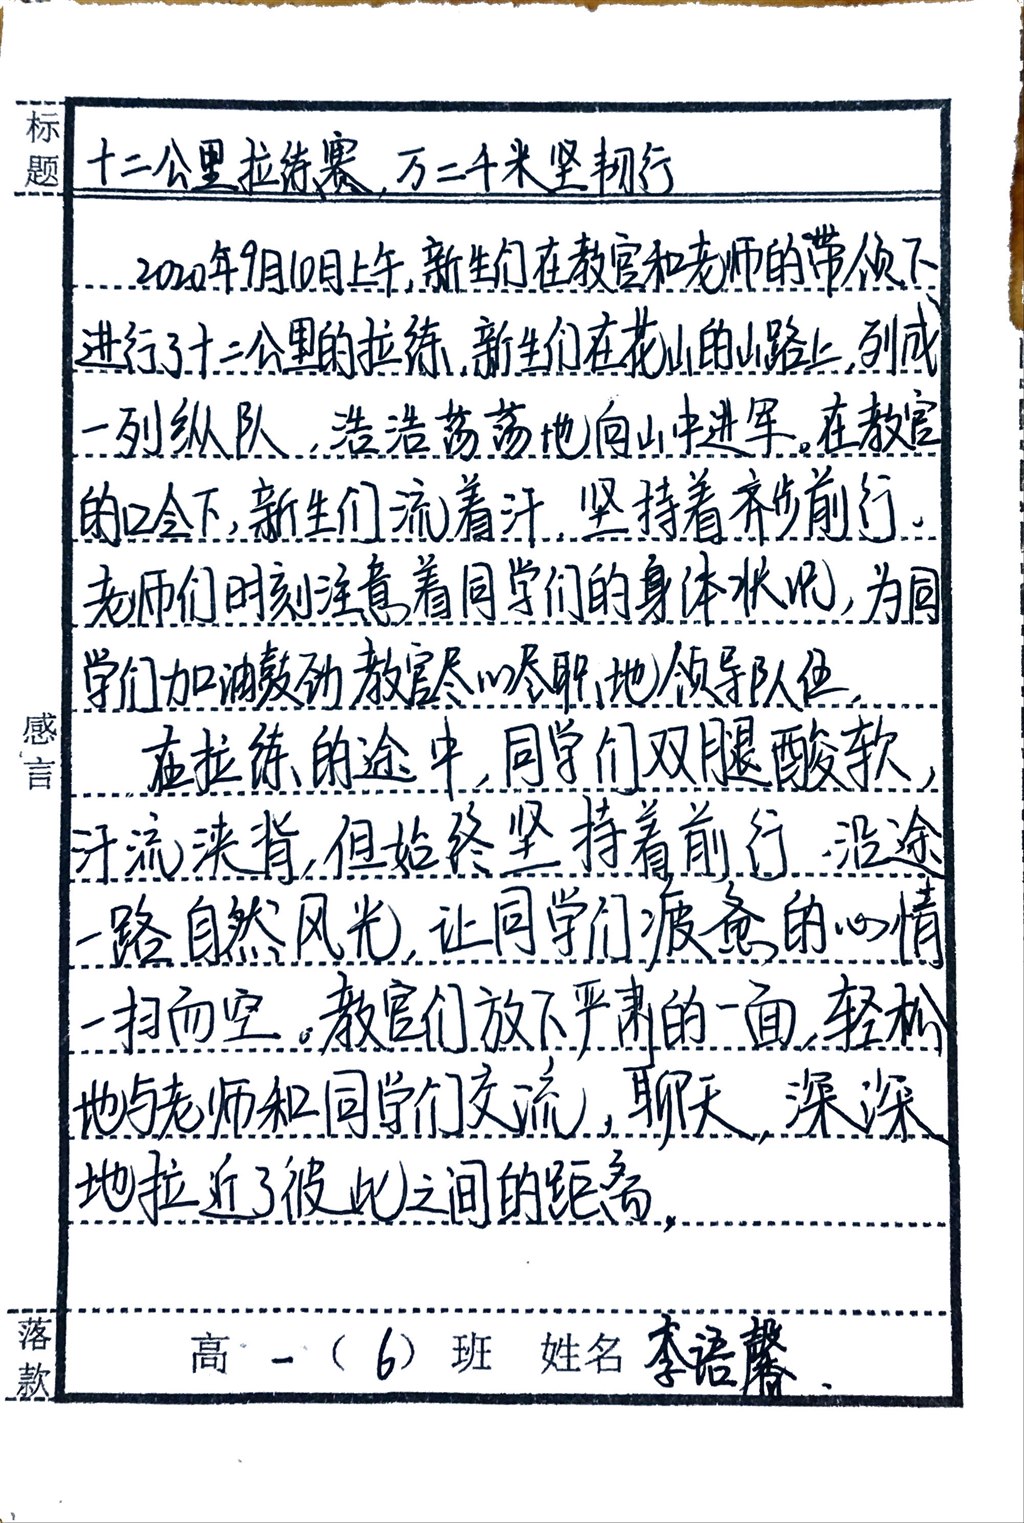 标题
十二公里拉练赛，万二千米坚韧行
2020年9月10日上午，新生们在教官和老师的带领下
进行了十二公里的拉练，新生们在花山的山路上，列成
一列纵队，浩浩荡荡地向山中进军。在教官
的口令下，新生们流着汗，坚持着齐步前行。
老师们时刻注意着同学们的身体状况，为同
学们加油鼓劲，教官尽心尽职地领导队伍。
感言
在拉练的途中，同学们双腿酸软，
汗流浃背，但始终坚持着前行，沿途
一路自然风光，让同学们疲惫的心情
一扫而空。教官们放下严肃的一面，轻松
地与老师和同学们交流，聊天，深深
地拉近了彼此之间的距离。
落款
高一（6）班 姓名 李语馨.